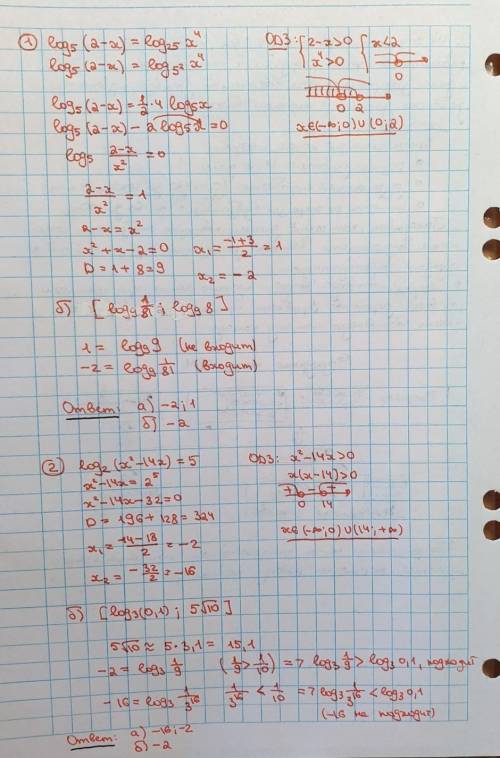 ① log₅(2-x) = log₂₅ x⁴
log₅(2-x) = log₅² x⁴
ОДЗ: { 2-x>0 { x<2
x⁴>0
0
0 2
x∈(-∞;0)∪(0;2)
log₅(2-x) = 1/2 · 4 log₅x
log₅(2-x) - 2 log₅x = 0
log₅ (2-x)/x² = 0
(2-x)/x² = 1
2-x = x²
x²+x-2=0 x₁ = (-1+3)/2 = 1
D = 1+8=9 x₂ = -2
б) [log₉ 1/81 ; log₉ 8]
1 = log₉ 9 (не входит)
-2 = log₉ 1/81 (входит)
Ответ: а) -2; 1
б) -2
② log₂(x²-14x) = 5
x²-14x = 2⁵
x²-14x-32=0
D = 196+128 = 324
x₁ = (14-18)/2 = -2
x₂ = -32/2 = -16
ОДЗ: x²-14x>0
x(x-14)>0
+ - +
0 14
x∈(-∞;0)∪(14;+∞)
б) [log₃(0,1) ; 5√10]
5√10 ≈ 5·3,1 = 15,1
-2 = log₃ 1/9 (1/9 > 1/10) => log₃ 1/9 > log₃ 0,1, подходит
-16 = log₃ 1/3¹⁶ 1/3¹⁶ < 1/10 => log₃ 1/3¹⁶ < log₃ 0,1
(-16 не подходит)
Ответ: а) -16; -2
б) -2